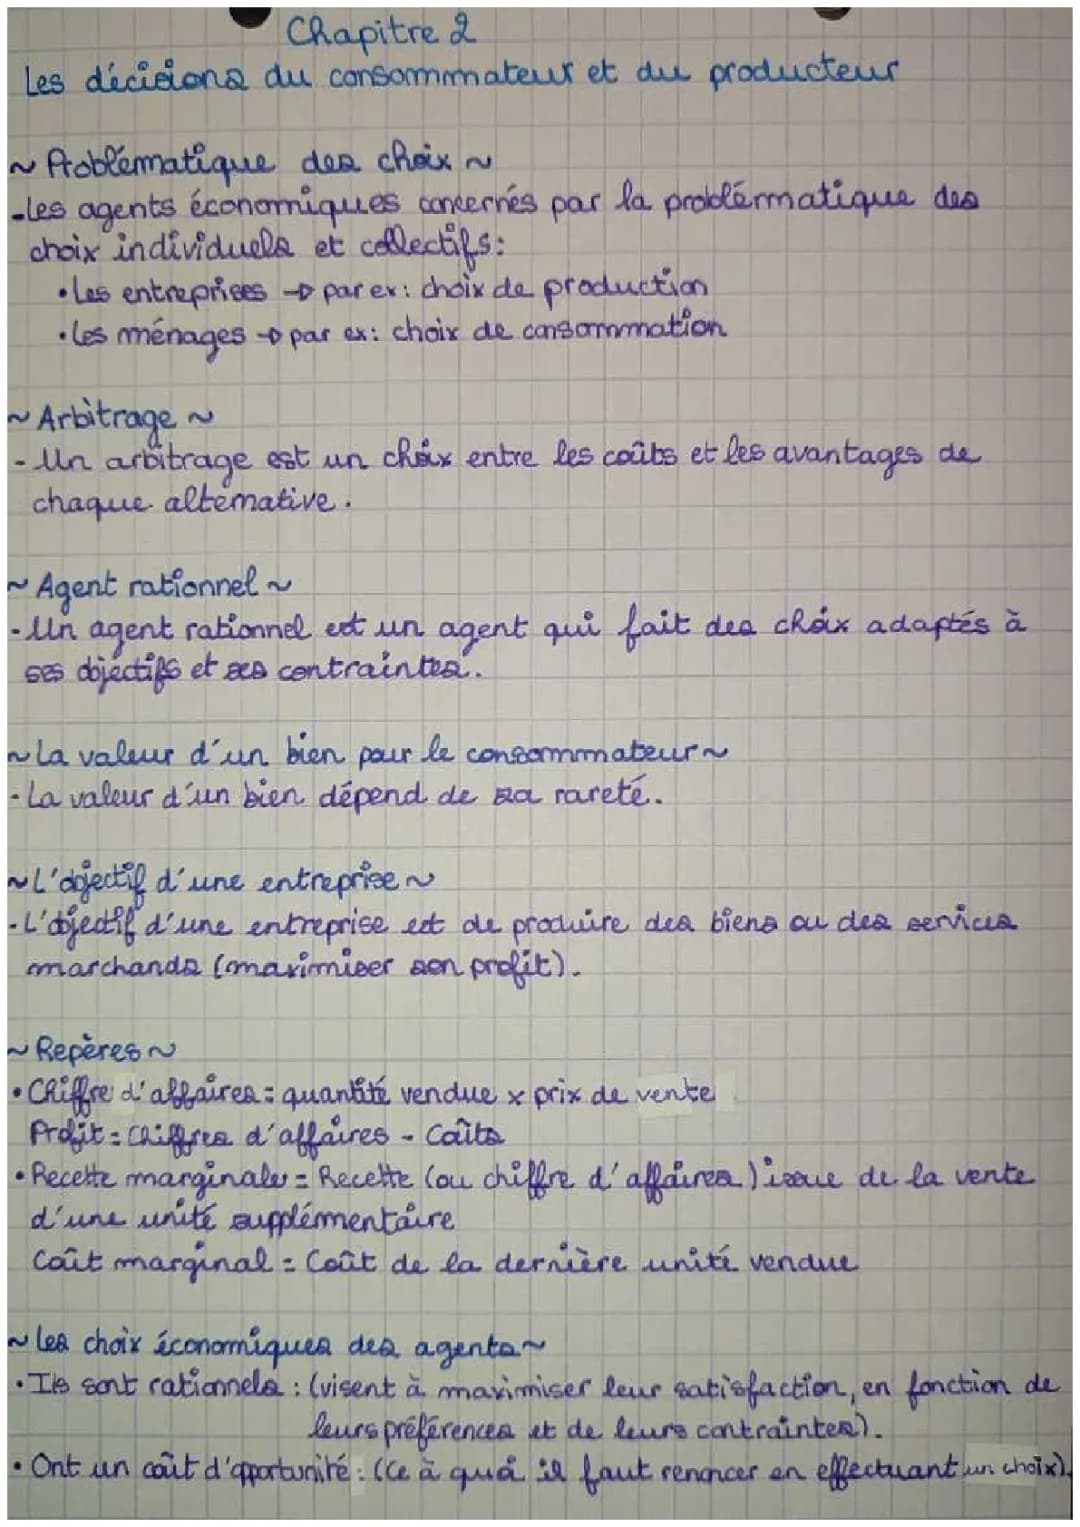 Chapitre 2
Les décisions du consommateur et du producteur
~ Problématique des choix ~
-Les agents économiques concernés par la problématique des
choix individuels et collectifs:
• Les entreprises → par ex: choix de production
• Les ménages → par ex: choix de consommation
~ Arbitrage ~
- Un arbitrage est un choix entre les coûts et les avantages de
chaque alternative.
~ Agent rationnel ~
- Un agent rationnel est un agent qui fait des choix adaptés à
ses objectifs et ses contraintes.
~ La valeur d'un bien pour le consommateur ~
- La valeur d'un bien dépend de sa rareté.
~ L'objectif d'une entreprise ~
- L'objectif d'une entreprise est de produire des biens ou des services
marchands (maximiser son profit).
~ Repères ~
• Chiffre d'affaires = quantité vendue x prix de vente
Profit = Chiffres d'affaires - Coûts
• Recette marginale = Recette (ou chiffre d'affaires) issue de la vente
d'une unité supplémentaire
Coût marginal = Coût de la dernière unité vendue
~ Les choix économiques des agents ~
• Ils sont rationnels : (visent à maximiser leur satisfaction, en fonction de
leurs préférences et de leurs contraintes).
• Ont un coût d'opportunité : (Ce à quoi il faut renoncer en effectuant un choix).